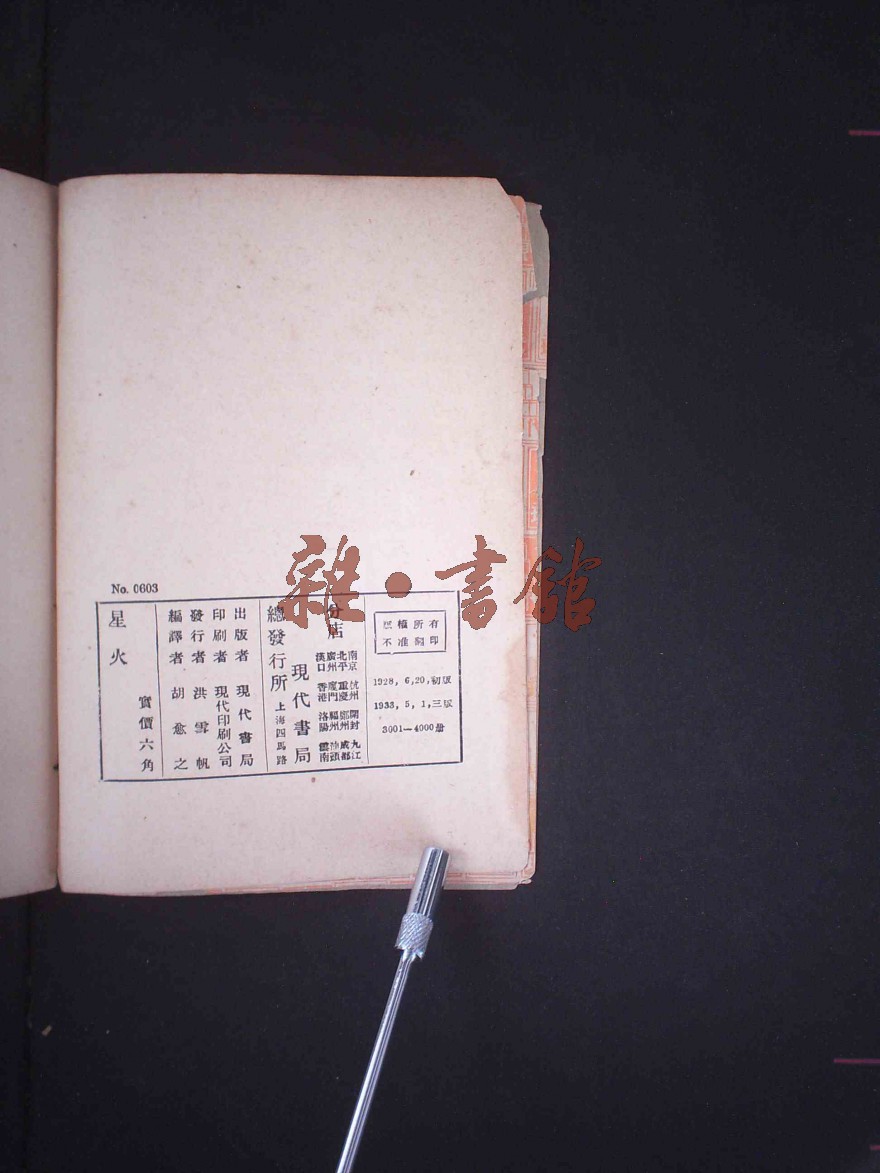 雜·書館
No. 0603
版權所有
不准翻印
1928, 6, 20, 初版
1933, 5, 1, 三版
3001—4000册
分店
南京 杭州 開封 九江
北平 重慶 鄭州 成都
廣州 廈門 福州 汕頭
漢口 香港 洛陽 雲南
總發行所 現代書局
上海四馬路
出版者 現代書局
印刷者 現代印刷公司
發行者 洪雪帆
編譯者 胡愈之
實價六角
星火